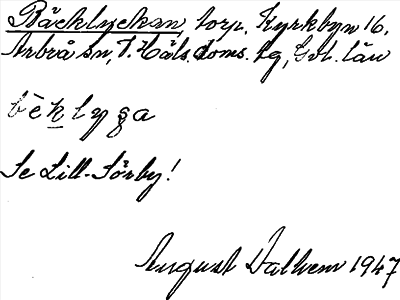 Bäcklyckan, torp, Kyrkbyn 16,
Arbrå sn, V. Häls. doms. lg, Gvl. län
bèklyga
Se Lill-Sörby!
August Dalhem 1947